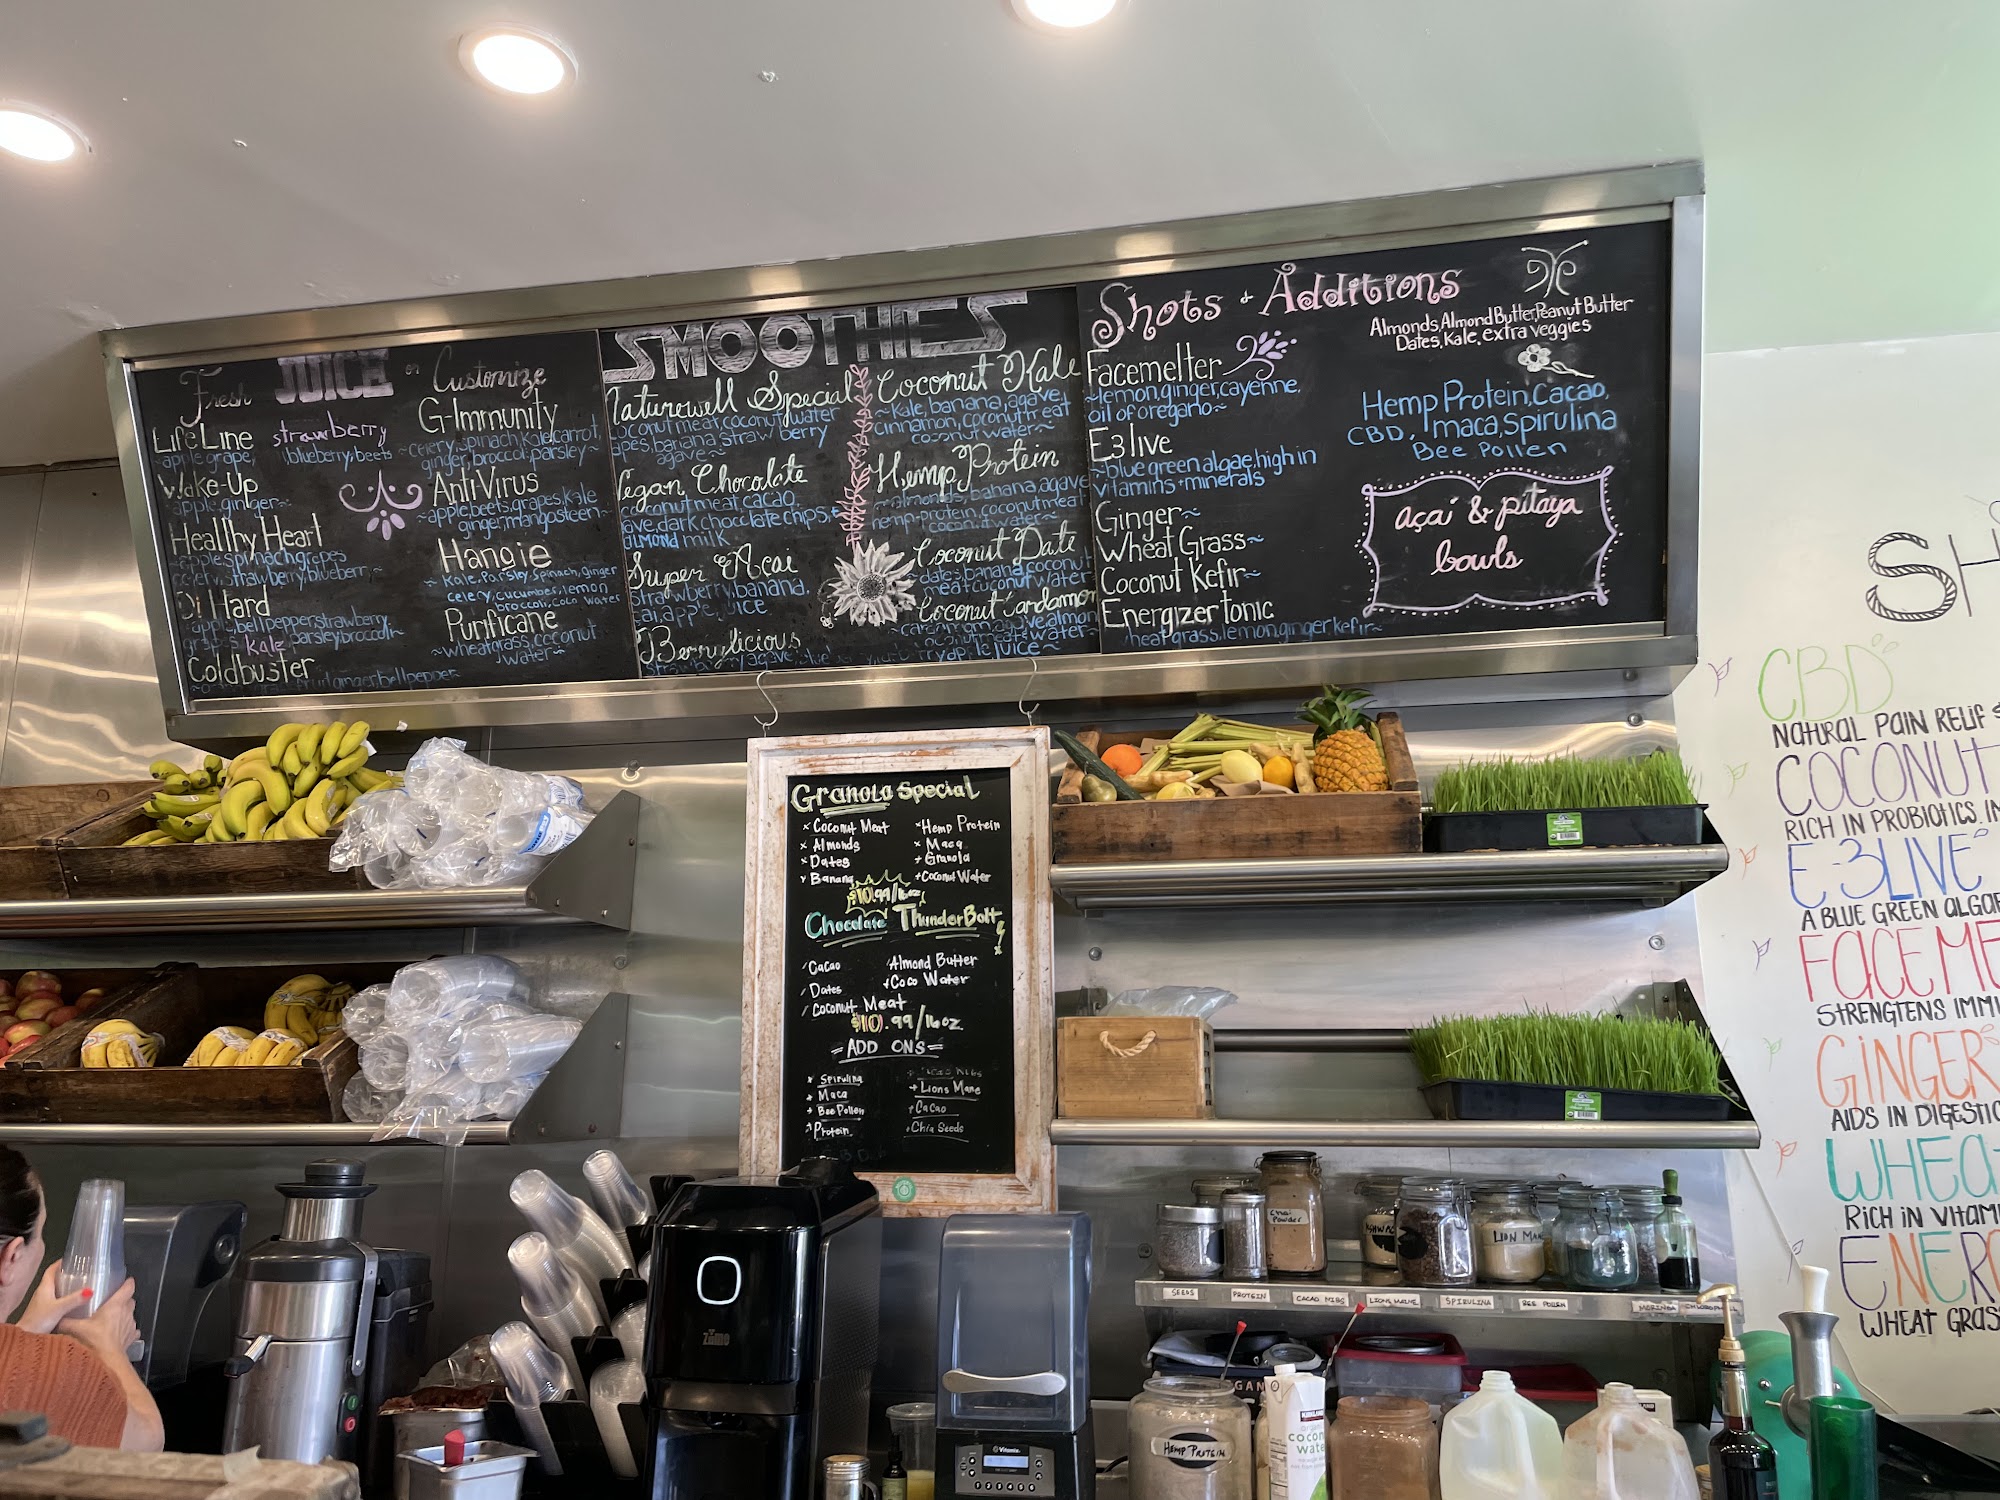 Fresh JUICE or Customize
Life Line
~apple, grape,
strawberry
blueberry, beets
Wake-Up
apple, ginger~
Healthy Heart
apple, spinach, grapes
celery, strawberry, blueberr
Di Hard
apple, bell pepper, strawberry,
grapes kale parsley, broccoli~
Coldbuster
fruit, ginger, bell pepper
G-Immunity
~celery, spinach, kale, carrot,
ginger, broccoli, parsley~
AntiVirus
~apple, beets, grapes, kale
ginger, mangosteen~
Hangie
~Kale, Parsley, Spinach, ginger
celery, cucumber, lemon
broccoli, Coco Water
Purificane
~wheatgrass, coconut
water~
SMOOTHIES
Naturewell Special
coconut meat, coconut water
apes, banana, straw berry
agave~
Vegan Chocolate
coconut meat, cacao,
ave, dark chocolate chips,
almond milk
Super Acai
strawberry, banana,
ai, apple, juice
Berrylicious
strawberry, agave, blue
Coconut Kale
~kale, banana, agave,
cinnamon, coconut meat
coconut water~
Hemp Protein
~almonds, banana, agave
hemp protein, coconut meat
coconut water~
Coconut Date
dates, banana, coconut
meat, cucunut water
Coconut Cardamom
water~
juice~
Shots & Additions
Facemelter
~lemon, ginger, cayenne,
oil of oregano~
E3live
~blue green algae, high in
vitamins + minerals
Ginger~
Wheat Grass~
Coconut Kefir~
Energizer tonic
wheat grass, lemon, ginger, kefir~
Almonds, Almond Butter, Peanut Butter
Dates, Kale, extra veggies
Hemp Protein, Cacao,
CBD, maca, Spirulina
Bee Pollen
açai & pitaya
bowls
Granola Special
x Coconut Meat
x Almonds
x Dates
x Banana
x Hemp Protein
x Maca
+ Granola
+ Coconut Water
$10.99/16oz
Chocolate ThunderBolt
Cacao
Dates
Coconut Meat
Almond Butter
Coco Water
$10.99/16oz
=ADD ONS=
x Spirulina
Maca
+ Bee Pollen
Protein
Cacao Nibs
+ Lions Mane
+ Cacao
Chia Seeds
SH
CBD
NATURAL PAIN RELIF
COCONUT
RICH IN PROBIOTICS. IM
E-3LIVE
A BLUE GREEN ALGAE
FACEME
STRENGTENS IMMU
GINGER
AIDS IN DIGESTIO
WHEA
RICH IN VITAM
ENERG
WHEAT GRAS
LION MAN
SEEDS
PROTEIN
CACAO NIBS
LIONS MANE
SPIRULINA
BEE POLLEN
MORINGA
Zumo
Vitamix
HEMP PROTEIN
KIRKLAND
coconut
water